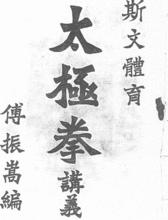 斯文體育
太極拳講義
傅振嵩編